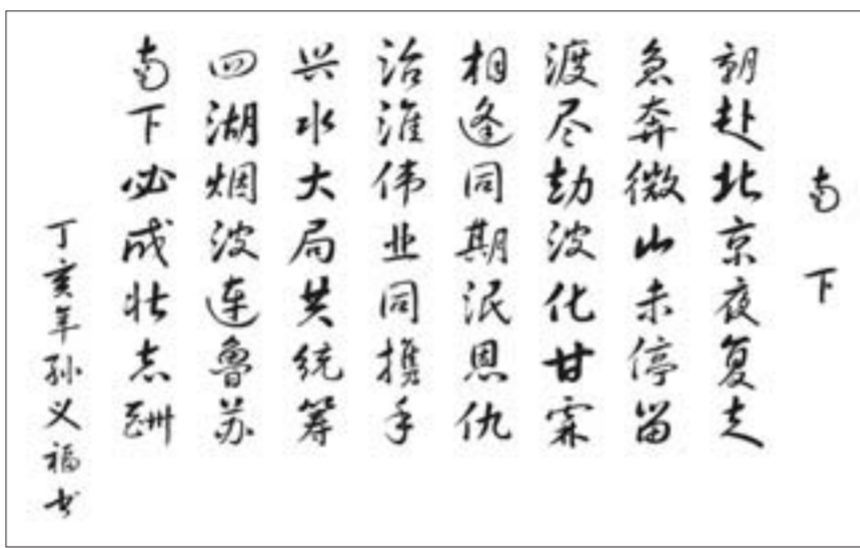 南下
朝赴北京夜复走
急奔微山未停留
渡尽劫波化甘霖
相逢同期泯恩仇
治淮伟业同携手
兴水大局共统筹
四湖烟波连鲁苏
南下必成壮志酬
丁亥年孙义福书